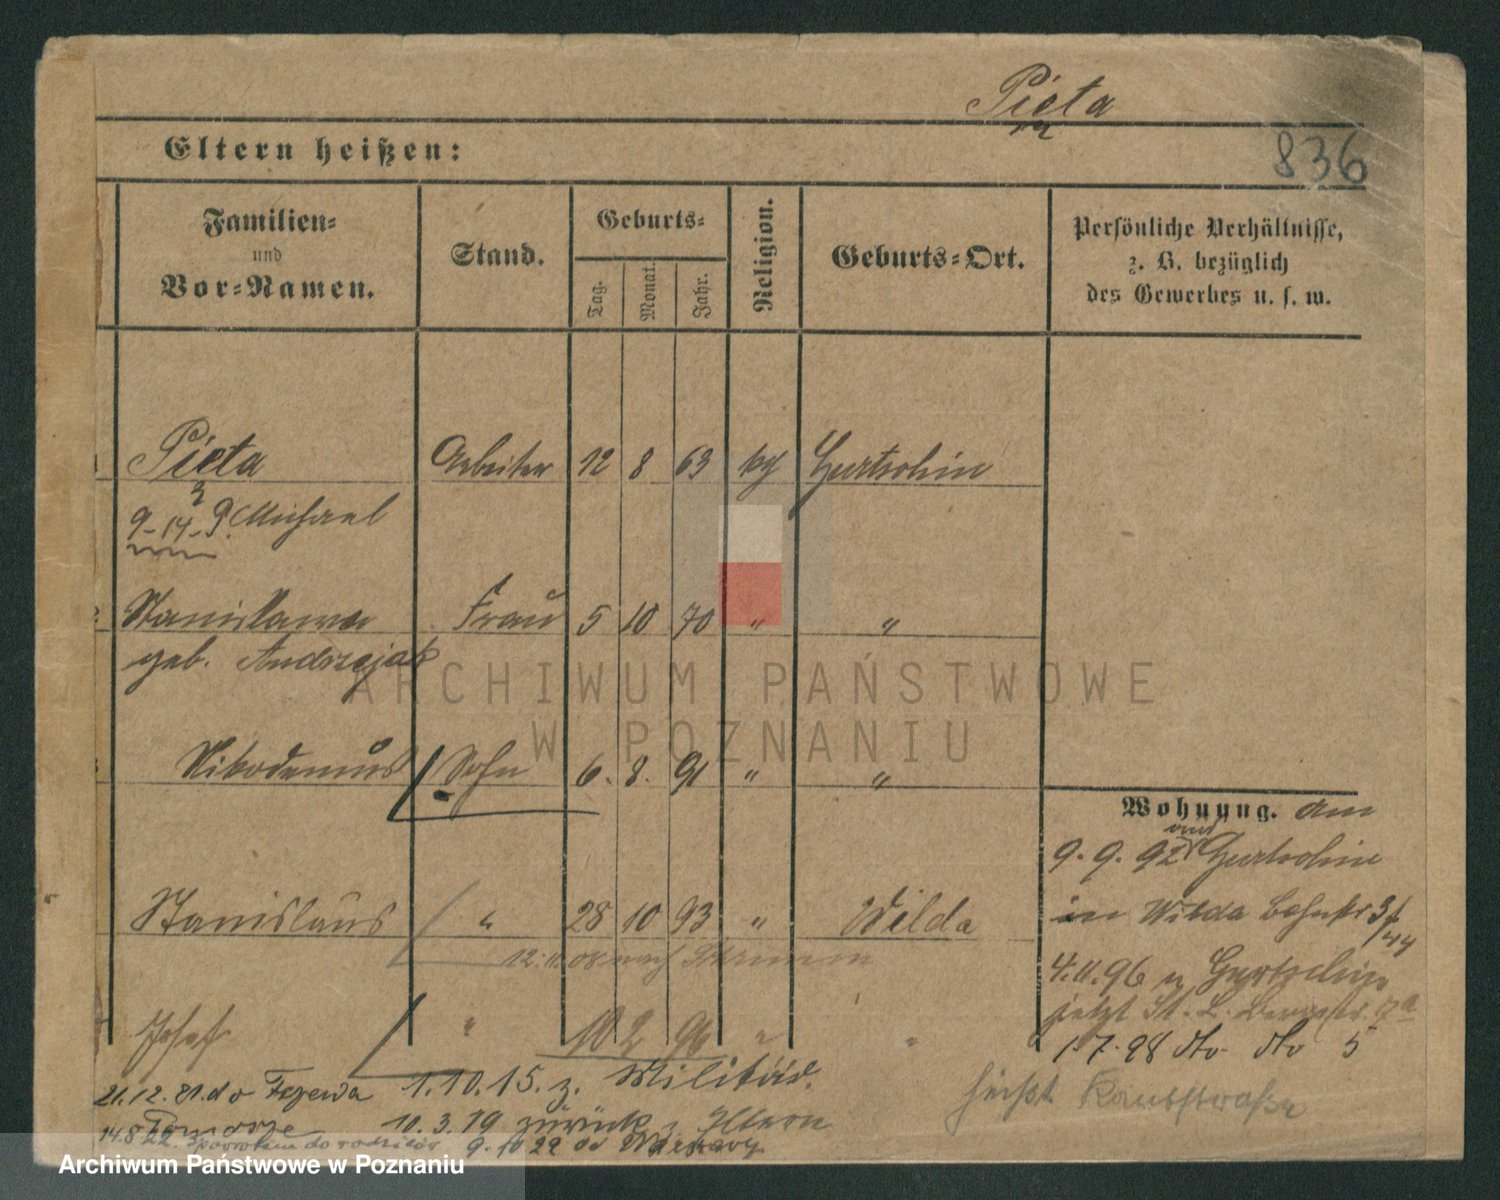 Pieta
836
Eltern heißen:
Familien- und Vor-Namen.
Stand.
Geburts-
Tag.
Monat.
Jahr.
Religion.
Geburts-Ort.
Persönliche Verhältnisse, z. B. bezüglich des Gewerbes u. s. w.
Pieta Arbeiter 12 8 63 kg Gurtschin
9-14-9. Michael
Stanislawa Frau 5 10 70 " "
geb. Andrzejak
Nikodemus Sohn 6. 8. 91 " "
Wohnung. am
9. 9. 92 Gurtschin
in Wilda
Stanislaus " 28 10 93 " Wilda
12.11.08 nach Schrimm
4.11.96 Gurtschin
jetzt St. L. Bergstr.
Josef " 10 2 96 " "
1.7.98 dto dto 5
21.12.21. do 1.10.15. z. Militär.
heißt Kantstraße
10.3.19 zurück z. Eltern
14.8.22. spowrotem do rodziców 9.10 22 do Warszawy
ARCHIWUM PAŃSTWOWE
W POZNANIU
Archiwum Państwowe w Poznaniu